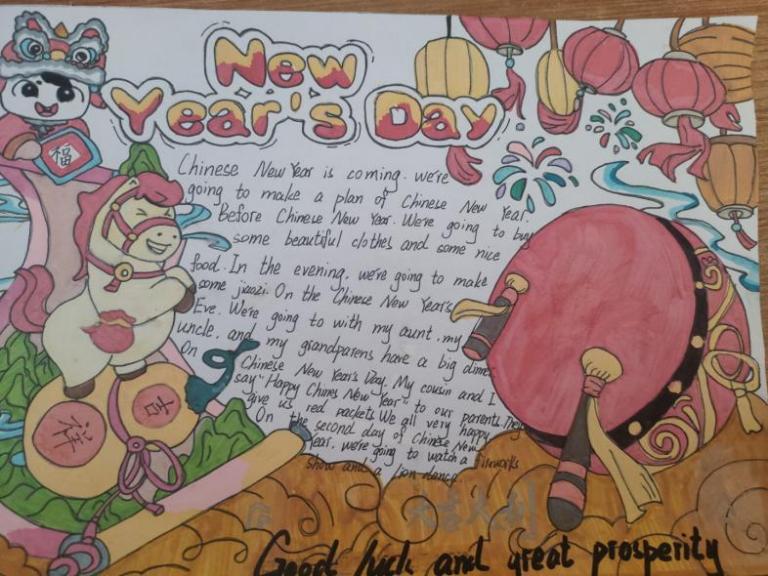 New
Year's Day
福
Chinese New Year is coming. we're
going to make a plan of Chinese New Year.
Before Chinese New Year. We're going to buy
some beautiful clothes and some nice
food. In the evening. we're going to make
some jiaozi. On the Chinese New Year's
Eve. We're going to with my aunt. my
uncle. and my grandparens have a big dinne
On Chinese New Year's Day. My cousin and I
say "Happy Chines New Year" to our parents. They
give us red packets. We all very happy
On the second day of Chinese New
Year. we're going to watch a fireworks
show and a lion dance.
吉
祥
Good luck and great prosperity